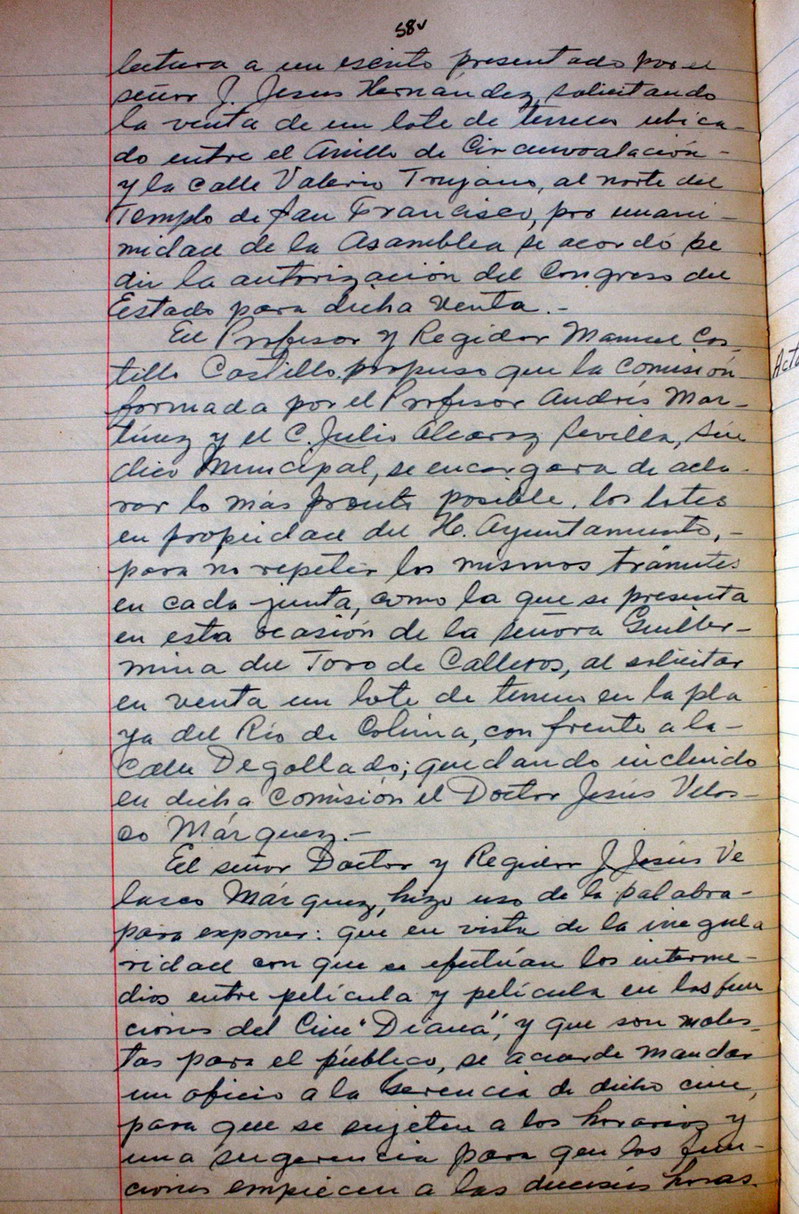 58v
lectura a un escrito presentado por el
señor J. Jesus Hernández, solicitando
la venta de un lote de terreno ubica-
do entre el Anillo de Circunvalación -
y la calle Valerio Trujano, al norte del
Templo de San Francisco, por unani-
midad de la Asamblea se acordó pe
dir la autorización del Congreso del
Estado para dicha venta.-
El Profesor y Regidor Manuel Cas-
tillo Castillo, propuso que la comisión
formada por el Profesor Andrés Mar-
tínez y el C. Julio Alcaraz Sevilla, Sín
dico Municipal, se encargara de acla-
rar lo más pronto posible, los lotes
en propiedad del H. Ayuntamiento, -
para no repetir los mismos trámites
en cada junta, como la que se presenta
en esta ocasión de la señora Guiller-
mina del Toro de Calleros, al solicitar
en venta un lote de terreno en la pla
ya del Río de Colima, con frente a la -
Calle Degollado; quedando incluido
en dicha Comisión el Doctor Jesús Velas-
co Márquez.-
El señor Doctor y Regidor J. Jesús Ve
lasco Márquez, hizo uso de la palabra -
para exponer: que en vista de la irregula
ridad con que se efectúan los interme-
dios entre película y película en las fun
ciones del Cine "Diana", y que son moles-
tas para el público, se acuerde mandar
un oficio a la Gerencia de dicho cine,
para que se sujeten a los horarios y
una sugerencia para que las fun-
ciones empiecen a las dieciséis horas.
Acta